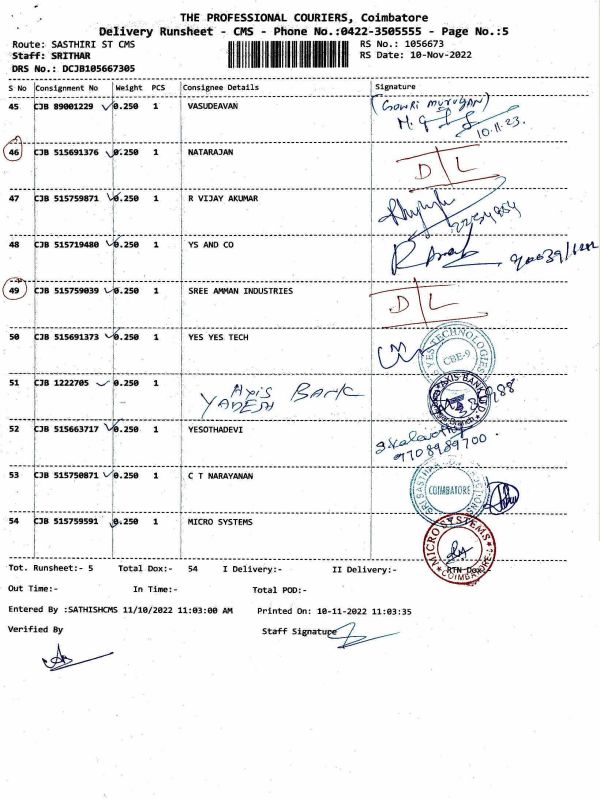 THE PROFESSIONAL COURIERS, Coimbatore
Delivery Runsheet - CMS - Phone No.:0422-3505555 - Page No.:5
Route: SASTHIRI ST CMS RS No.: 1056673
Staff: SRITHAR RS Date: 10-Nov-2022
DRS No.: DCJB105667305
S No Consignment No Weight PCS Consignee Details Signature
45 CJB 89001229 0.250 1 VASUDEAVAN (Gowri murugan)
10.11.23.
46 CJB 515691376 0.250 1 NATARAJAN D L
47 CJB 515759871 0.250 1 R VIJAY AKUMAR
48 CJB 515719480 0.250 1 YS AND CO
49 CJB 515759039 0.250 1 SREE AMMAN INDUSTRIES D L
50 CJB 515691373 0.250 1 YES YES TECH YES TECHNOLOGIES CBE-9
51 CJB 1222705 0.250 1 Axis Bank AXIS BANK LTD
52 CJB 515663717 0.250 1 YESOTHADEVI
9708989700
53 CJB 515750871 0.250 1 C T NARAYANAN COIMBATORE
54 CJB 515759591 0.250 1 MICRO SYSTEMS MICRO SYSTEMS COIMBATORE
Tot. Runsheet:- 5 Total Dox:- 54 I Delivery:- II Delivery:- RTN Dox
Out Time:- In Time:- Total POD:-
Entered By :SATHISHCMS 11/10/2022 11:03:00 AM Printed On: 10-11-2022 11:03:35
Verified By Staff Signature